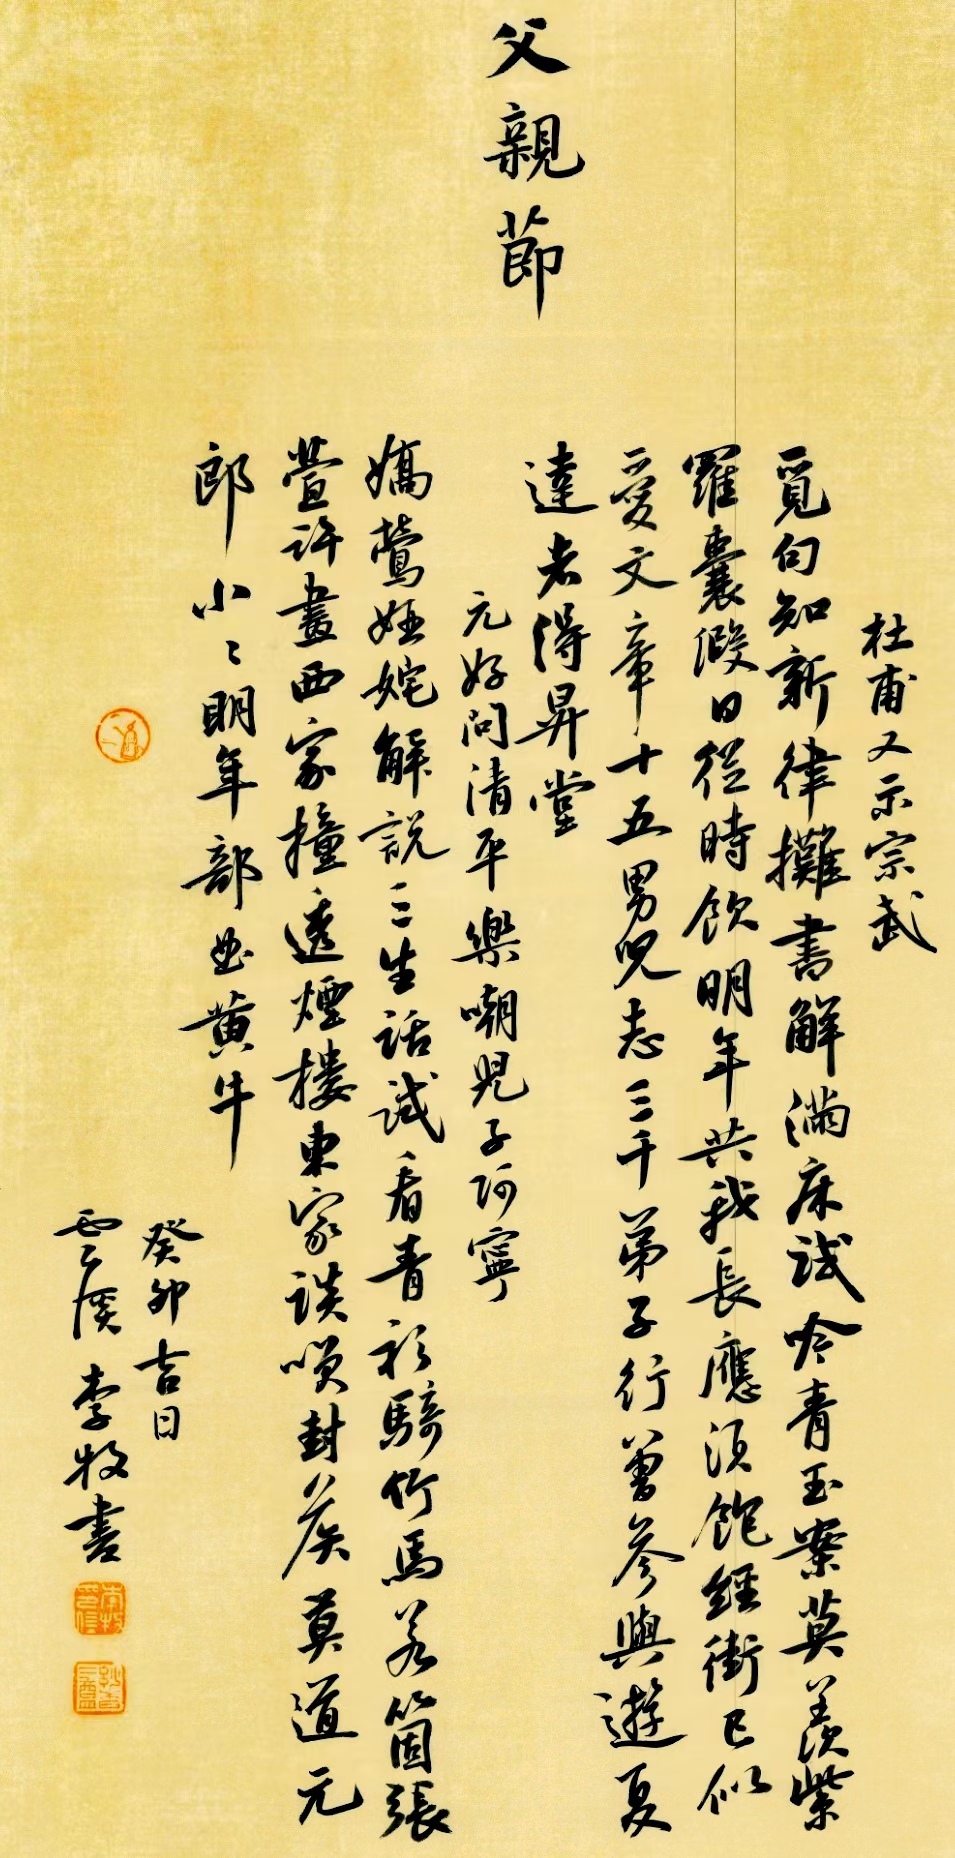 父親節
杜甫又示宗武
覓句知新律攤書解滿床試吟青玉案莫羨紫
羅囊假日從時飲明年共我長應須飽經術已似
愛文章十五男兒志三千弟子行曾參與遊夏
達者得昇堂
元好問清平樂嘲兒子阿寧
嬌鶯婭姹解說三生話試看青衫騎竹馬若箇張
萱許畫西家撞透煙樓東家談咲封侯莫道元
郎小〻明年部曲黃牛
癸卯吉日
雲溪李牧書
李牧印信